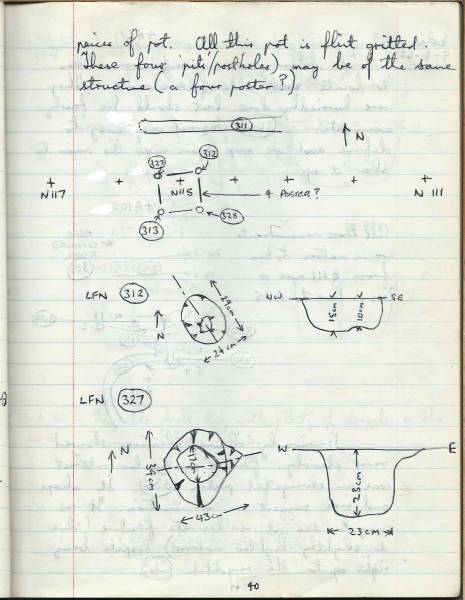 peices of pot. All this pot is flint gritted.
These four pits/postholes) may be of the same
structure (a four poster?)
311
N
327
312
N117
N115
4 POSTER?
N 111
313
328
LFN 312
N
29cm
24cm
NW
SE
15cm
10cm
LFN 327
N
34cm
17cm
43cm
W
E
25cm
23cm
40